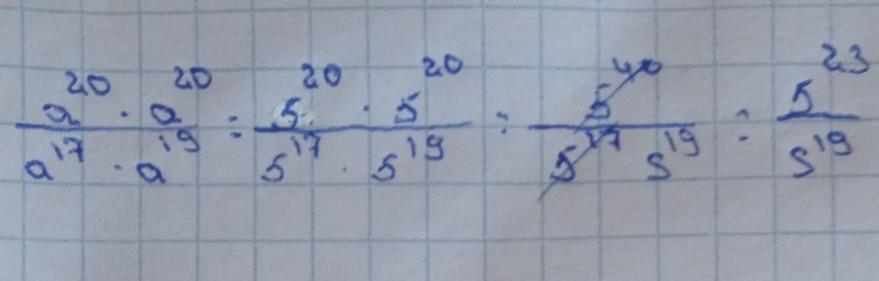 a^20 · a^20 / a^17 · a^19 = 5^20 · 5^20 / 5^17 · 5^19 = 5^40 / 5^17 5^19 = 5^23 / 5^19